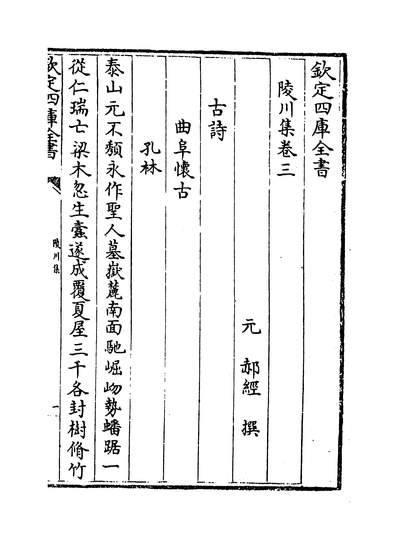 欽定四庫全書
陵川集卷三
元 郝經 撰
古詩
曲阜懷古
孔林
泰山元不頽永作聖人墓嶽麓南面馳崛岉勢蟠踞一
從仁瑞亡梁木忽生蠧遂成覆夏屋三千各封樹脩竹
欽定四庫全書
陵川集
一